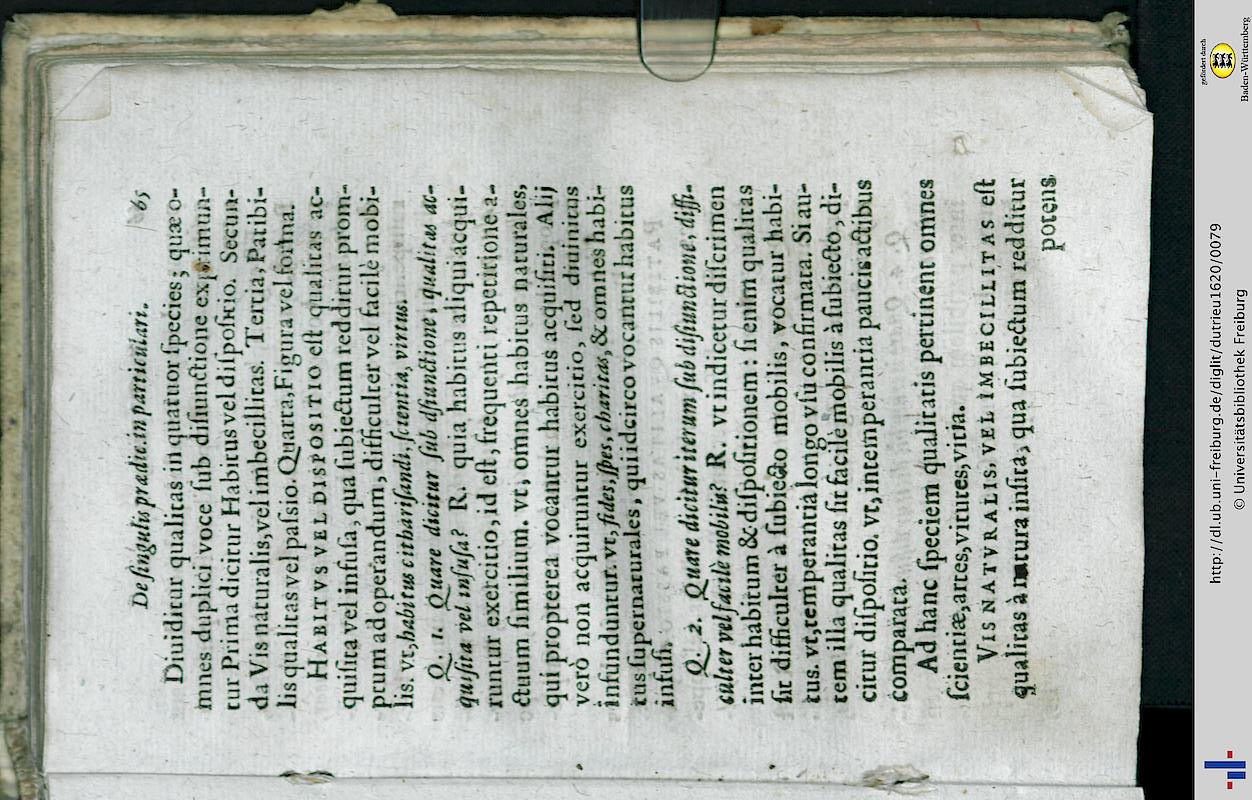 De singulis prædic. in particulari. 65
Diuiditur qualitas in quatuor ſpecies; quæ o-
mnes duplici voce ſub diſiunctione exprimun-
tur Prima dicitur Habitus vel diſpoſitio. Secun-
da Vis naturalis, vel imbecillitas. Tertia, Patibi-
lis qualitas vel paſsio. Quarta, Figura vel forma.
HABITVS VEL DISPOSITIO eſt qualitas ac-
quiſita vel infuſa, qua ſubiectum redditur prom-
prum ad operandum, difficulter vel facile mobi-
lis. vt, habitus cithariſandi, ſcientia, virtus.
Q. 1. Quare dicitur ſub diſiunctione, qualitas ac-
quiſita vel infuſa? R. quia habitus aliqui acqui-
runtur exercitio, id eſt, frequenti repetitione a-
ctuum ſimilium. vt, omnes habitus naturales,
qui propterea vocantur habitus acquiſiti. Alij
verò non acquiruntur exercitio, ſed diuinitus
infunduntur. vt, fides, ſpes, charitas, & omnes habi-
tus ſupernaturales, qui idcirco vocantur habitus
infuſi.
Q. 2. Quare dicitur iterum ſub diſiunctione, diffi-
culter vel facilè mobilis? R. vt indicetur diſcrimen
inter habitum & diſpoſitionem: ſi enim qualitas
ſit difficulter à ſubiecto mobilis, vocatur habi-
tus. vt, temperantia longo vſu confirmata. Si au-
tem illa qualitas ſit facile mobilis à ſubiecto, di-
citur diſpoſitio. vt, intemperantia paucis actibus
comparata.
Ad hanc ſpeciem qualitatis pertinent omnes
ſcientiæ, artes, virtutes, vitia.
VIS NATVRALIS, VEL IMBECILLITAS eſt
qualitas à natura inſita, qua ſubiectum redditur
potens
gefördert durch
Baden-Württemberg
http://dl.ub.uni-freiburg.de/diglit/dutrieu1620/0079
© Universitätsbibliothek Freiburg